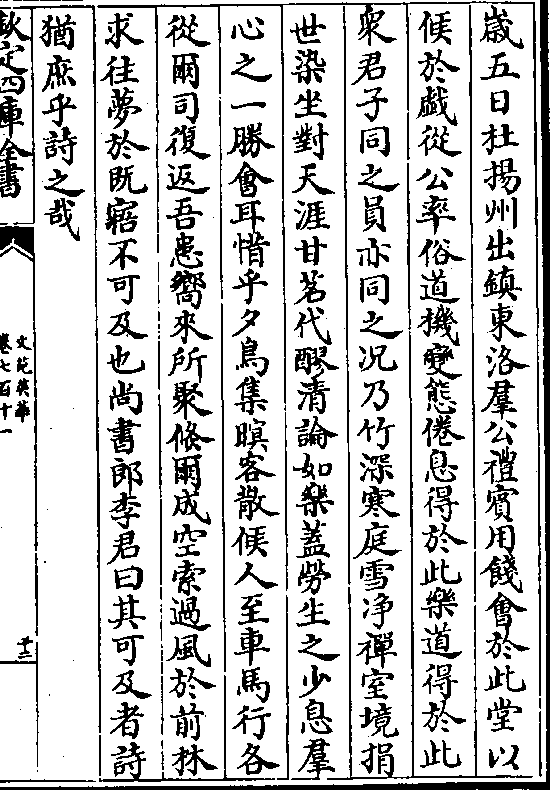 歳五日杜揚州出鎮東洛羣公禮賓用餞會於此堂以
候於戯從公率俗道機變態倦息得於此樂道得於此
衆君子同之員亦同之况乃竹深寒庭雪净禪室境捐
世染坐對天涯甘茗代醪清論如樂蓋勞生之少息羣
心之一勝會耳惜乎夕鳥集暝客散候人至車馬行各
從爾司復返吾患嚮來所聚倐爾成空索過風於前林
求往夢於既寤不可及也尚書郎李君曰其可及者詩
猶庶乎詩之哉
欽定四庫全書
文苑英華
卷七百十一